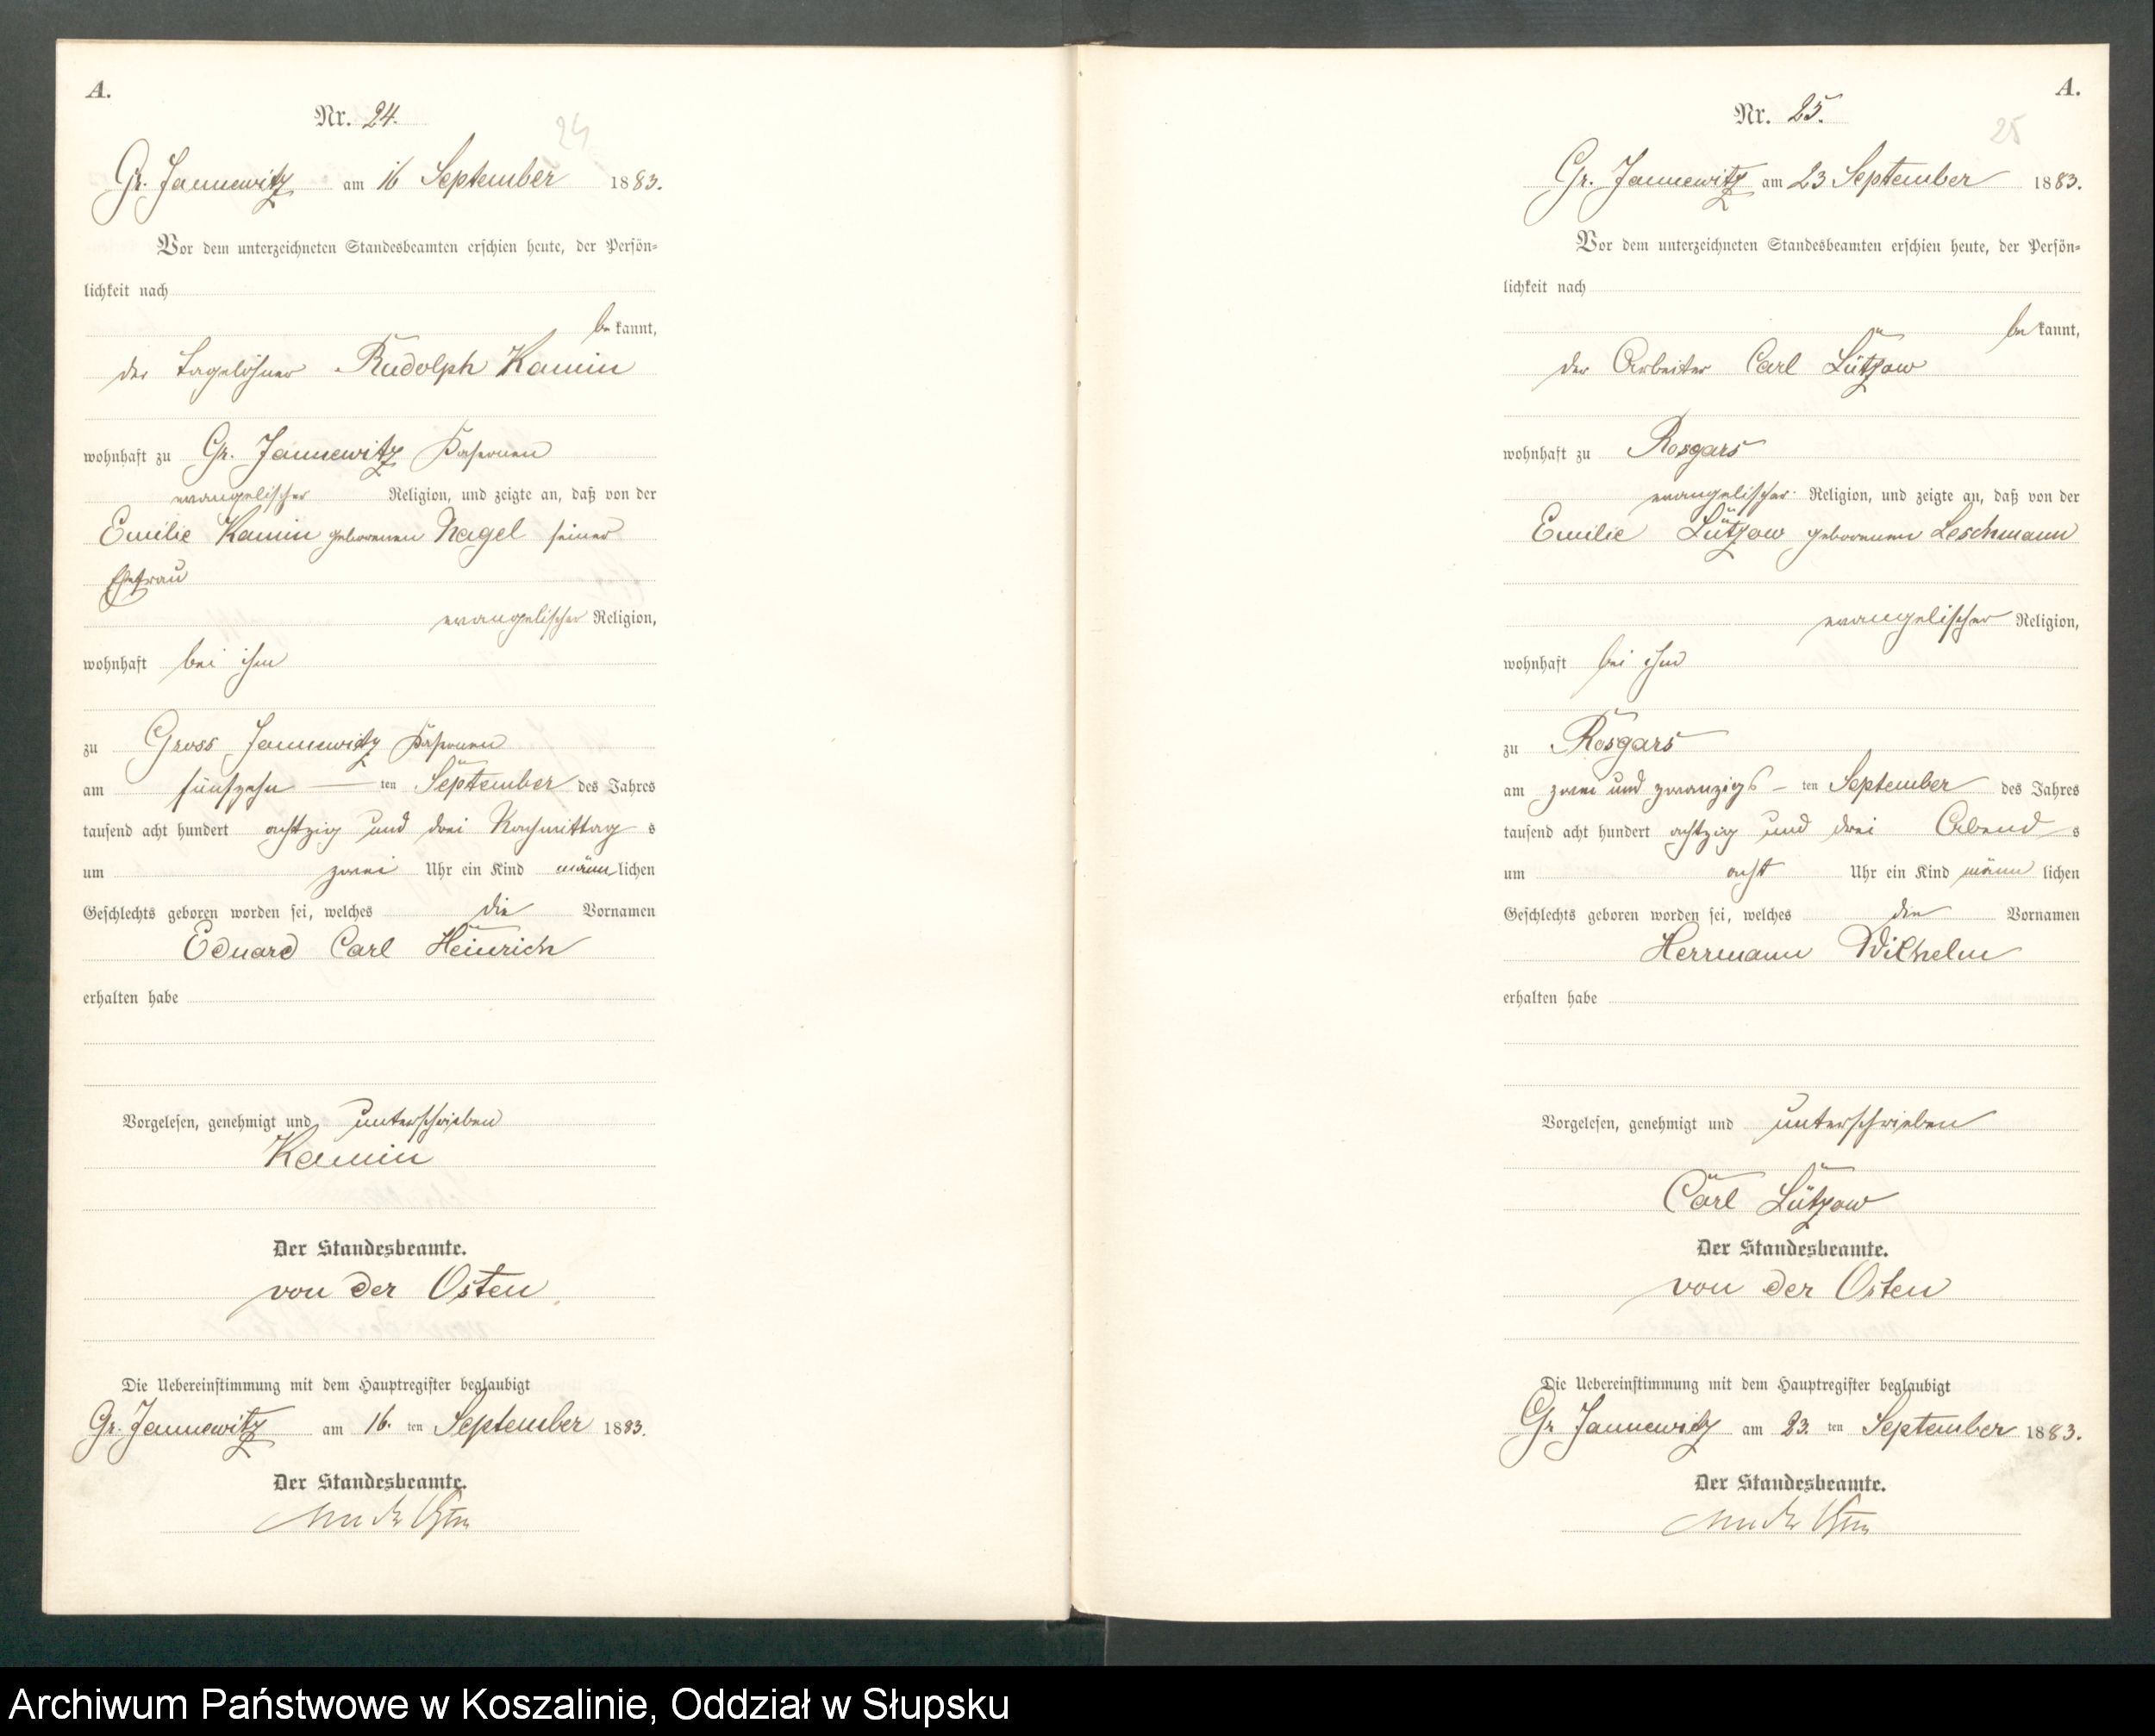 A.
Nr. 24.
24
Gr. Jannewitz am 16 September 1883.
Vor dem unterzeichneten Standesbeamten erschien heute, der Persön-
lichkeit nach
be kannt,
der Tagelöhner Rudolph Kamin
wohnhaft zu Gr. Jannewitz
evangelischer Religion, und zeigte an, daß von der
Emilie Kamin geborenen Nagel seiner
Ehefrau
evangelischer Religion,
wohnhaft bei ihm
zu Gross Jannewitz
am fünfzehn ten September des Jahres
tausend acht hundert achtzig und drei Nachmittag s
um zwei Uhr ein Kind männ lichen
Geschlechts geboren worden sei, welches die Vornamen
Eduard Carl Heinrich
erhalten habe
Vorgelesen, genehmigt und unterschrieben
Kamin
Der Standesbeamte.
von der Osten
Die Uebereinstimmung mit dem Hauptregister beglaubigt
Gr. Jannewitz am 16. ten September 1883.
Der Standesbeamte.
von der Osten
A.
Nr. 25.
25
Gr. Jannewitz am 23 September 1883.
Vor dem unterzeichneten Standesbeamten erschien heute, der Persön-
lichkeit nach
be kannt,
der Arbeiter Carl Lützow
wohnhaft zu Rosgars
evangelischer Religion, und zeigte an, daß von der
Emilie Lützow geborenen Leschmann
evangelischer Religion,
wohnhaft bei ihm
zu Rosgars
am zwei und zwanzigs ten September des Jahres
tausend acht hundert achtzig und drei Abend s
um acht Uhr ein Kind männ lichen
Geschlechts geboren worden sei, welches die Vornamen
Herrmann Wilhelm
erhalten habe
Vorgelesen, genehmigt und unterschrieben
Carl Lützow
Der Standesbeamte.
von der Osten
Die Uebereinstimmung mit dem Hauptregister beglaubigt
Gr Jannewitz am 23. ten September 1883.
Der Standesbeamte.
von der Osten
Archiwum Państwowe w Koszalinie, Oddział w Słupsku